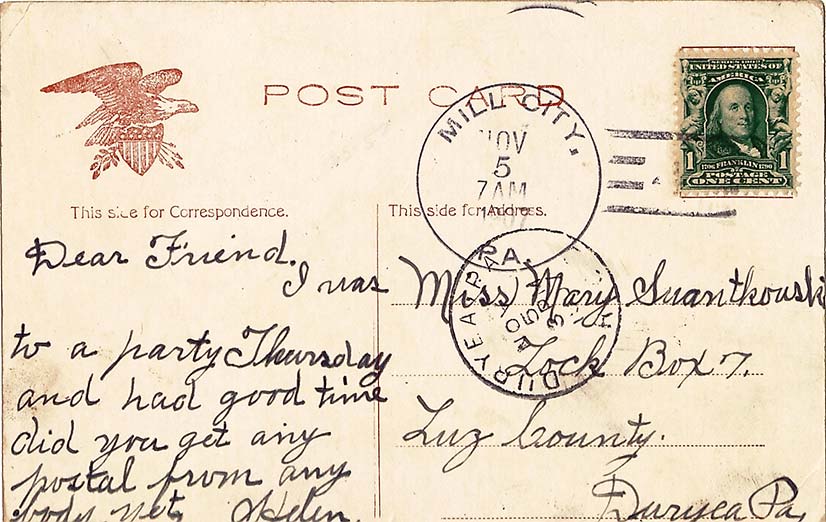 POST CARD
MILL CITY,
PA.
NOV
5
7AM
1907
SERIES 1902
UNITED STATES OF
AMERICA
1 1706 FRANKLIN 1790 1
POSTAGE
ONE CENT
This side for Correspondence.
This side for Address.
Dear Friend.
I was
to a party Thursday
and had good time
did you get any
postal from any
body yet, Helen.
DURYEA PA
NOV
5
3
Miss Mary Suantkouski
Lock Box 7.
Luz County.
Duryea Pa,